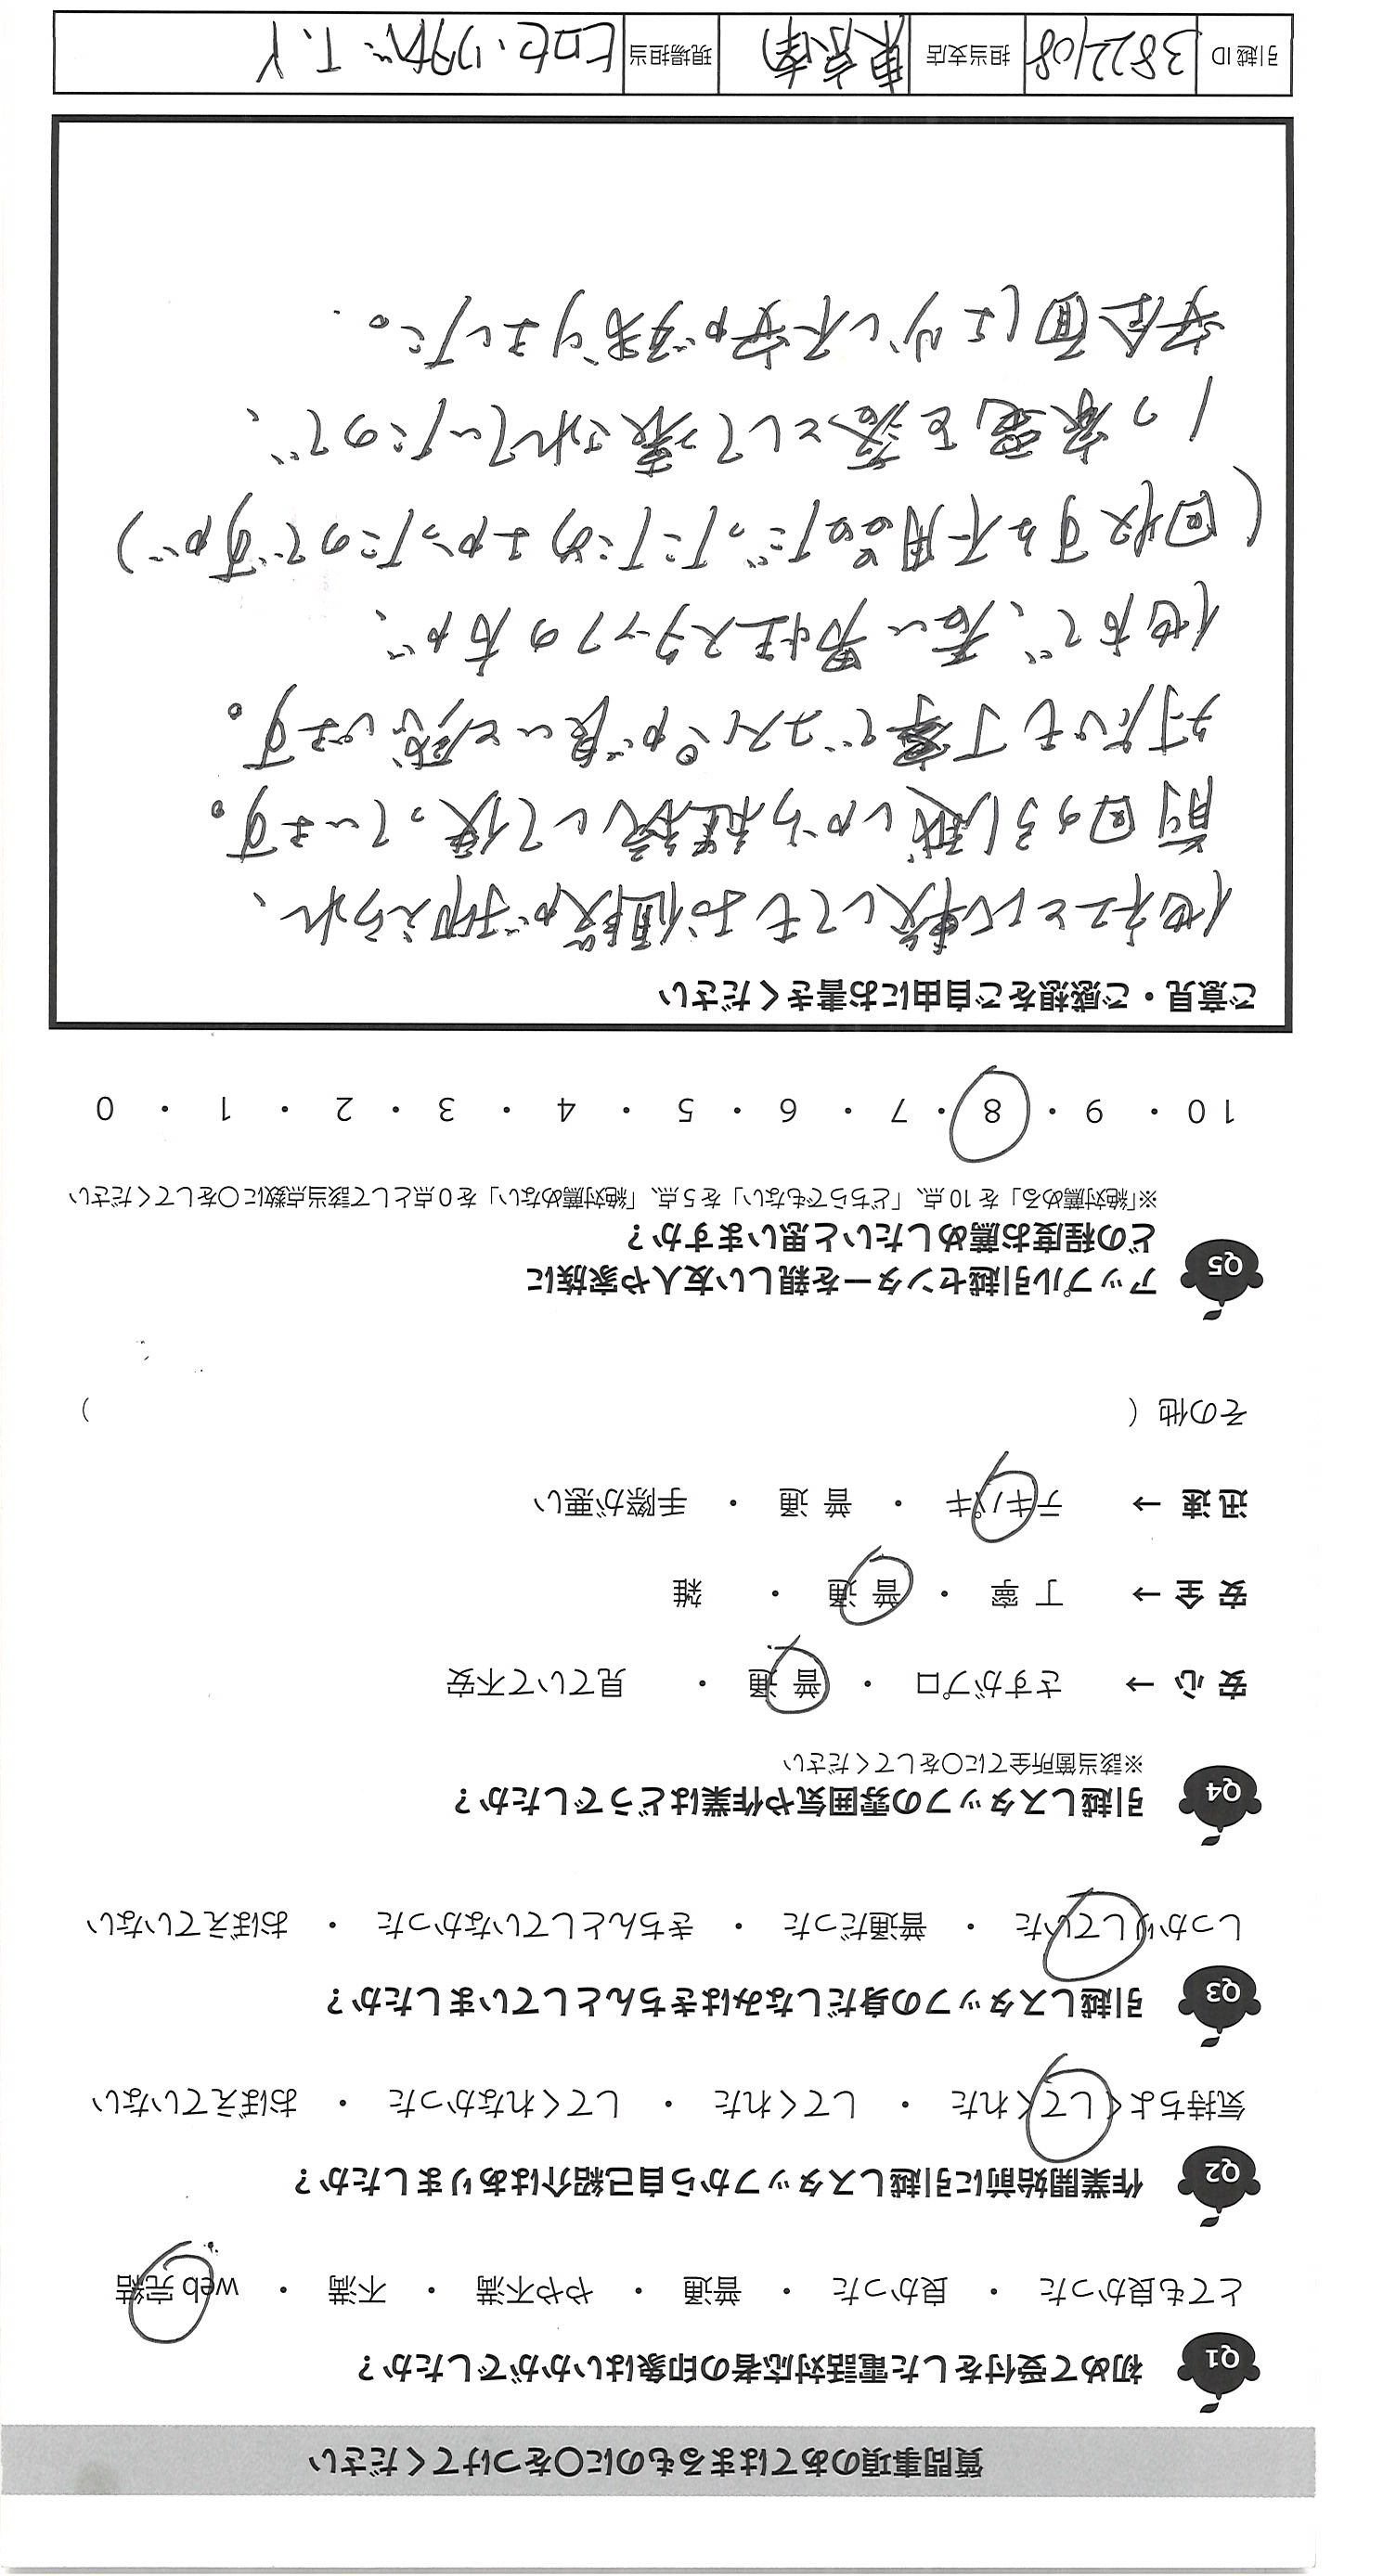 質問事項のあてはまるものに○をつけてください
Q1 初めて受付をした電話対応者の印象はいかがでしたか？
とても良かった ・ 良かった ・ 普通 ・ やや不満 ・ 不満 ・ web 完結
Q2 作業開始前に引越しスタッフから自己紹介はありましたか？
気持ちよくしてくれた ・ してくれた ・ してくれなかった ・ おぼえていない
Q3 引越しスタッフの身だしなみはきちんとしていましたか？
しっかりしていた ・ 普通だった ・ きちんとしていなかった ・ おぼえていない
Q4 引越しスタッフの雰囲気や作業はどうでしたか？
※該当箇所全てに○をしてください
安 心 → さすがプロ ・ 普 通 ・ 見ていて不安
安 全 → 丁 寧 ・ 普 通 ・ 雑
迅 速 → テキパキ ・ 普 通 ・ 手際が悪い
その他（ ）
Q5 アップル引越センターを親しい友人や家族に
どの程度お薦めしたいと思いますか？
※「絶対薦める」を 10 点、「どちらでもない」を 5 点、「絶対薦めない」を 0 点として該当点数に○をしてください
10 ・ 9 ・ 8 ・ 7 ・ 6 ・ 5 ・ 4 ・ 3 ・ 2 ・ 1 ・ 0
ご意見・ご感想をご自由にお書きください
他社と比較してもお値段が抑えられ、
前回の引越しから継続して使っています。
対応も丁寧でコスパが良いと感じます。
他方で、若い男性スタッフの方が、
（回収する不用品だったためよかったのですが）
1つ家電を落として壊されていたので、
安全面は少し不安が残りました。
引越 ID 3822108 担当支店 東京南 現場担当 ヒロセ、T.Y